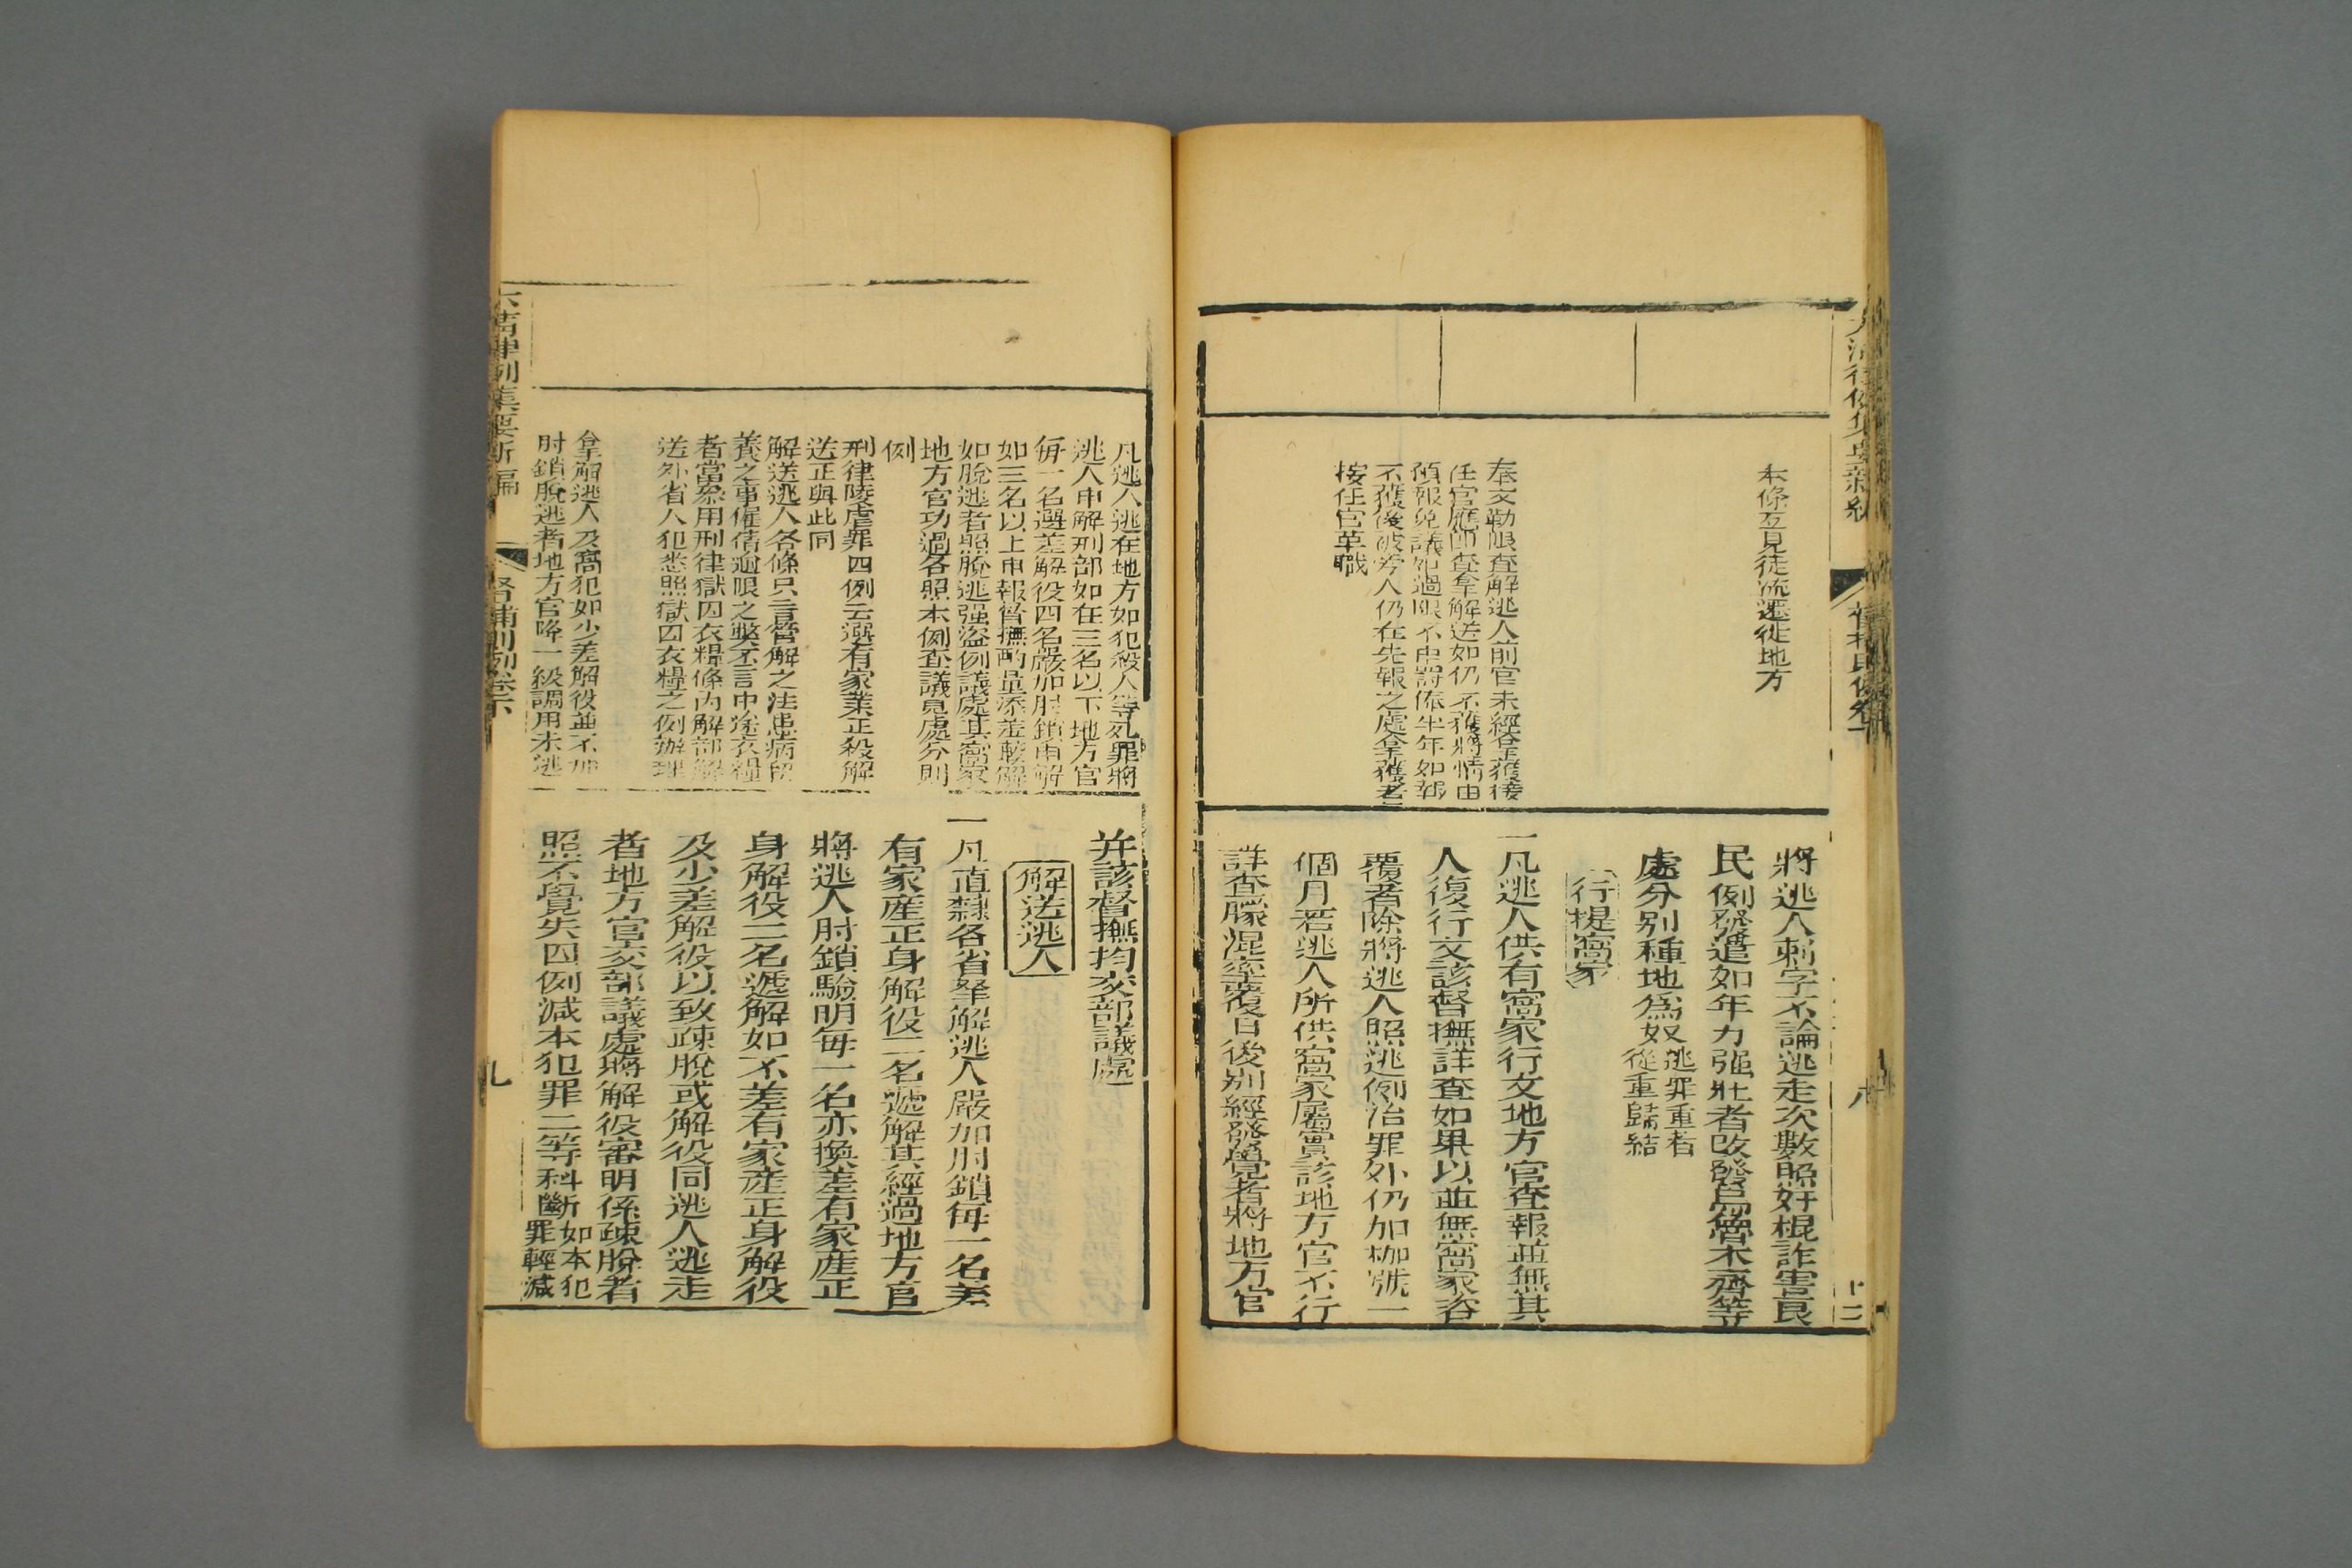 本條互見徒流遷徙地方
奉文勒限查解逃人前官未經拿獲後
任官應卽查拿解送如仍不獲將情由
預報免議如過限不申罰俸半年如報
不獲後被旁人仍在先報之處拿獲者
按任官革職
將逃人刺字不論逃走次數照奸棍詐害良
民例發遣如年力强壯者改發烏魯木齊等
處分别種地爲奴逃罪重者
從重歸結
行提窩家
一凡逃人供有窩家行文地方官查報並無其
人復行文該督撫詳查如果以並無窩家咨
覆者除將逃人照逃例治罪外仍加枷號一
個月若逃人所供窩家屬實該地方官不行
詳查朦混率覆日後别經發覺者將地方官
凡逃人逃在地方如犯殺人等死罪將
逃人申解刑部如在三名以下地方官
每一名選差解役四名嚴加肘鎖申解
如三名以上申報督撫酌量添差轉解
如脫逃者照脫逃强盜例議處其窩家
地方官功過各照本例查議見處分則
例
刑律陵虐罪囚例云選有家業正殺解
送正與此同
解送逃人各條只言管解之法患病留
養之事僱倩逾限之獘不言中途衣糧
者當叅用刑律獄囚衣糧條內解部解
送外省人犯悉照獄囚衣糧之例辦理
拿解逃人及窩犯如少差解役並不加
肘鎖脫逃者地方官降一級調用未逃
并該督撫均交部議處
解送逃人
一凡直隸各省拏解逃人嚴加肘鎖每一名差
有家産正身解役二名遞解其經過地方官
將逃人肘鎖驗明每一名亦換差有家産正
身解役二名遞解如不差有家産正身解役
及少差解役以致疎脫或解役同逃人逃走
者地方官交部議處將解役審明係疎脫者
照不覺失囚例減本犯罪二等科斷如本犯
罪輕減
督捕則例卷下
九